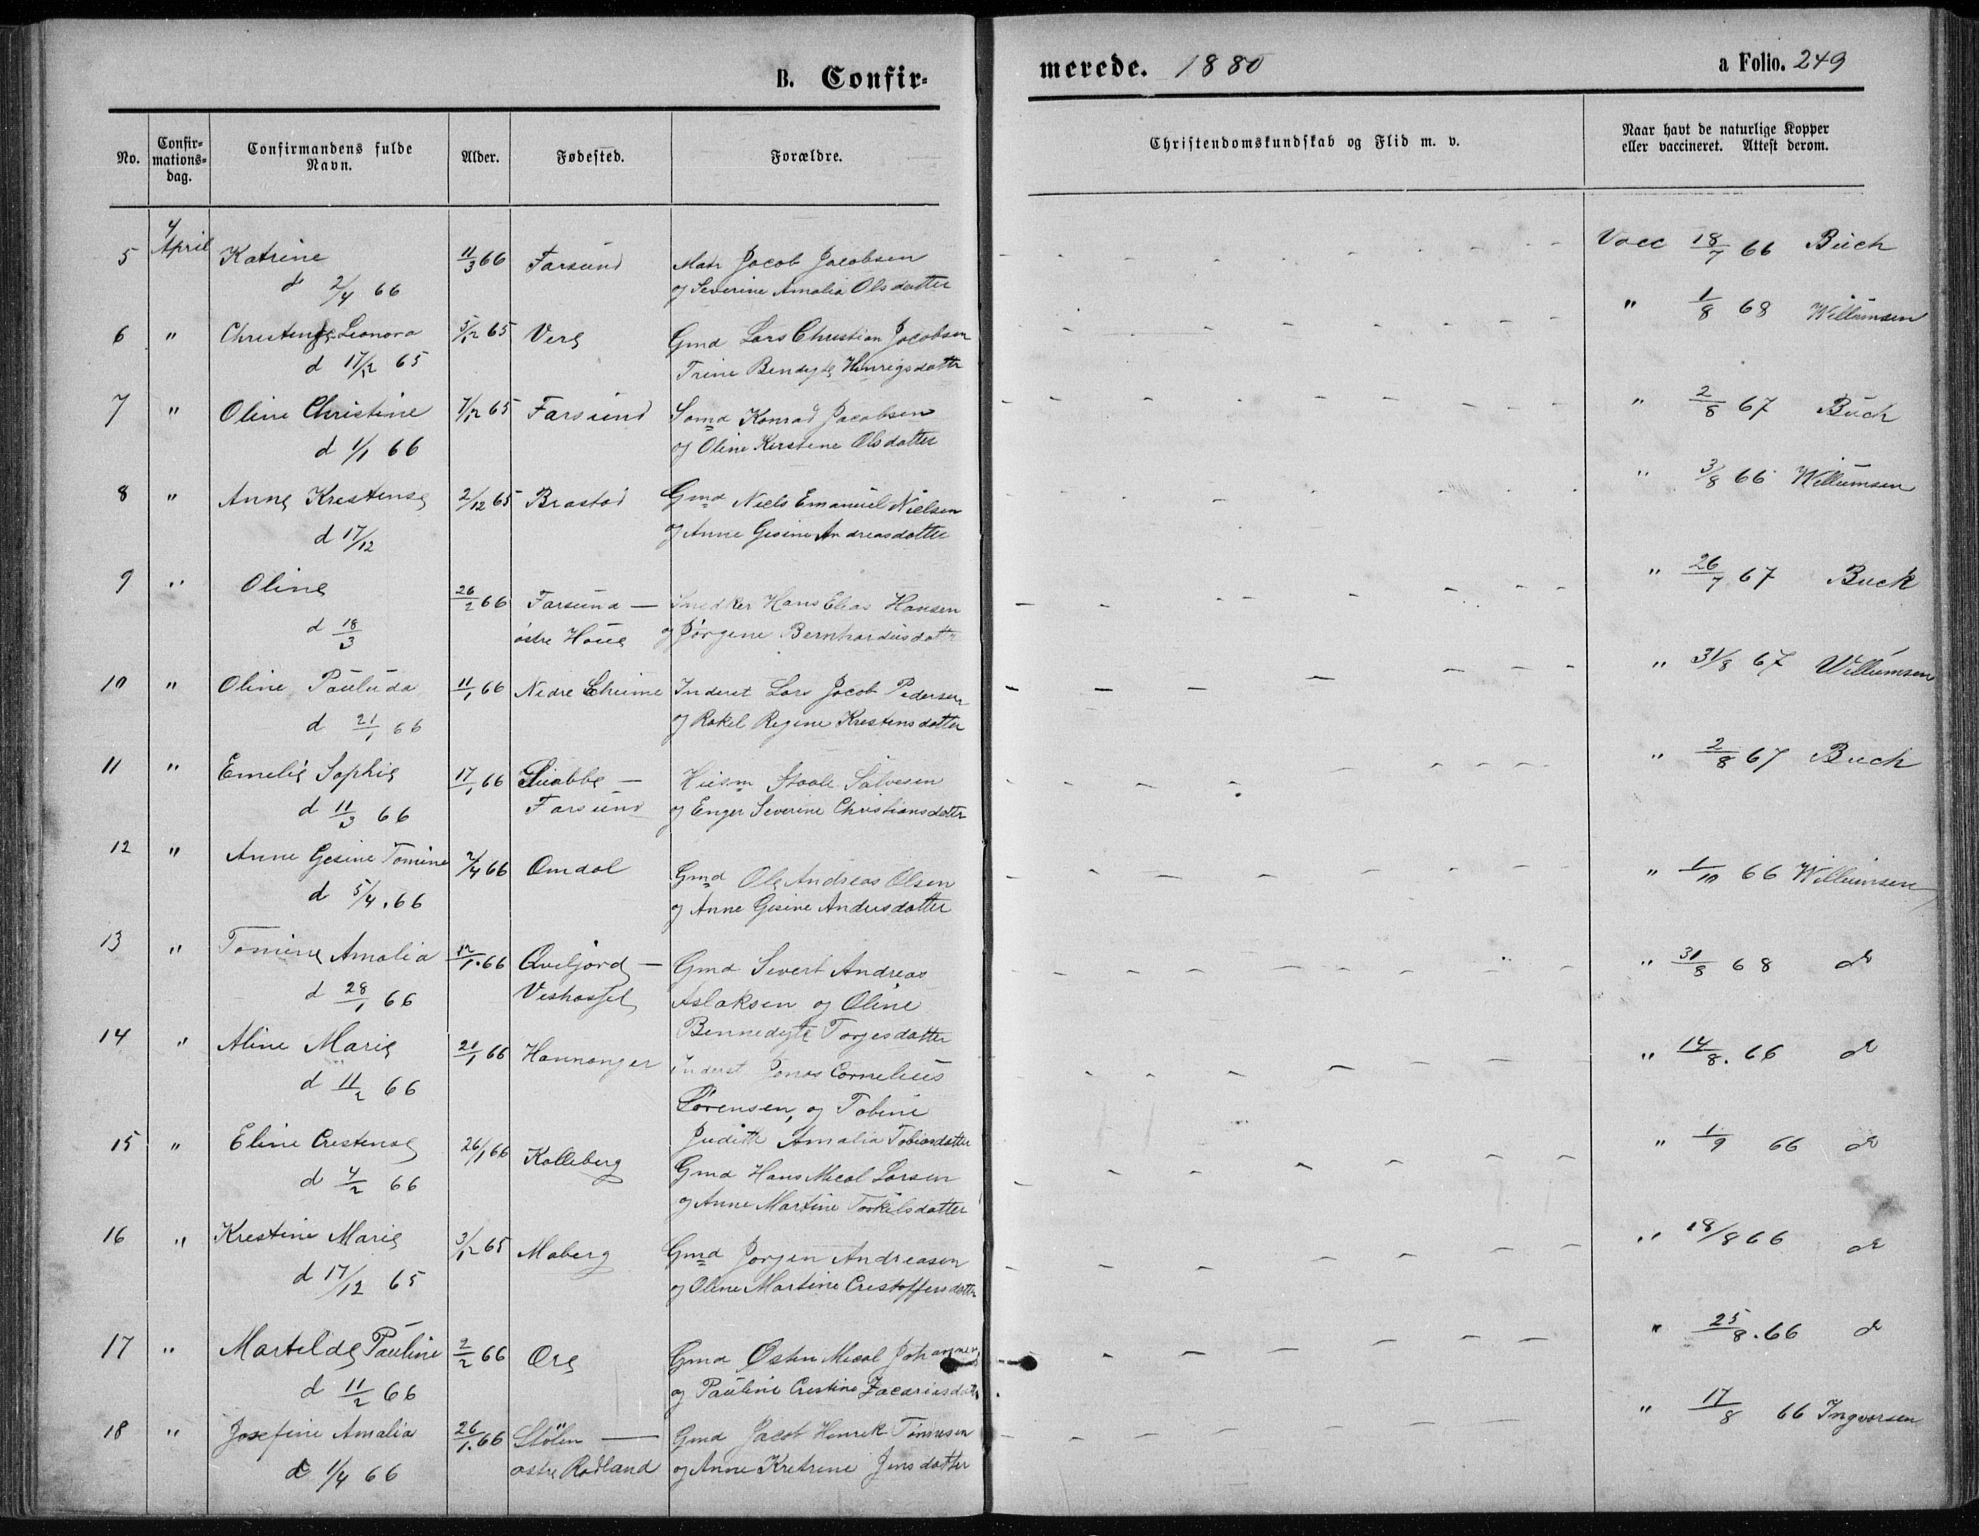 B. Confir-
merede. 1880
a Folio. 249
No.
Confir-
mations-
dag.
Confirmandens fulde
Navn.
Alder.
Fødested.
Forældre.
Christendomskundskab og Flid m. v.
Naar havt de naturlige Kopper
eller vaccineret. Attest derom.
5 4 April Katrine 11/3 66 Farsund Matr Jacob Jacobsen Vacc 18/7 66 Buch
d 2/4 66 og Severine Amalia Olsdatter
6 " Leonora 5/12 65 Vere Gmd Lars Christian Jacobsen " 1/8 68 Willumsen
d 17/12 65 Trine Bendigte Henrigsdatter
7 " Oline Christine 7/12 65 Farsund Sømd Konrad Jacobsen " 2/8 67 Buch
d 1/1 66 og Oline Kirstene Olsdatter
8 " Anne Krestense 2/12 65 Brastad Gmd Niels Emanuel Nielsen " 3/8 66 Willumsen
d 17/12 og Anne Gesine Andreasdatter
9 " Oline 26/2 66 Farsund — Snedker Hans Elias Hansen " 26/7 67 Buch
d 18/3 østre Houe og Jørgene Bernhardusdatter
10 " Oline Pauluda 11/1 66 Nedre Inderst Lars Jacob Pedersen " 31/8 67 Willumsen
d 21/1 66 og Rakel Regine Krestensdatter
11 " Emelie Sophie 17/1 66 — Huusm Staale Salvesen " 2/8 67 Buch
d 11/3 66 Farsund og Enger Severine Christiansdatter
12 " Anne Gesine Tomine 2/4 66 Omdal Gmd Ole Andreas Olsen " 1/10 66 Willumsen
d 5/4 . 66 og Anne Gisine Andersdatter
13 " Tomine Amalia 12/1 . 66 Qveljord — Gmd Sivert Andreas " 31/8 68 do
d 28/1 66 Vesthassel Aslaksen og Oline
Bennedigte Torjesdatter
14 " Aline Marie 20/1 66 Hannanger Inderst Jonas Cornelius " 14/8 . 66 do
d 11/2 66 Sørensen og Tobine
Judith Amalia Tobiasdatter
15 " Eline Crestense 26/1 66 Kalleberg Gmd Hans Mical Larsen " 1/9 66 do
d 4/2 66 og Anne Martine Torkilsdatter
16 " Krestine Marie 3/12 65 Maberg Gmd Jørgen Andreasen " 18/8 66 do
d 17/12 65 og Oline Martine Crestoffersdatter
17 " Martilde Pauline 2/2 66 Ore Gmd Østen Mical Johannes " 25/8 . 66 do
d 11/2 66 og Pauline Crestine Zacariasdat
18 " Josefine Amalia 26/1 . 66 Stølen — Gmd Jacob Henrik Tønnesen " 17/8 66 Ingvarsen
d 1/4 66 østre Rødland og Anne Kretrine Jensdatter